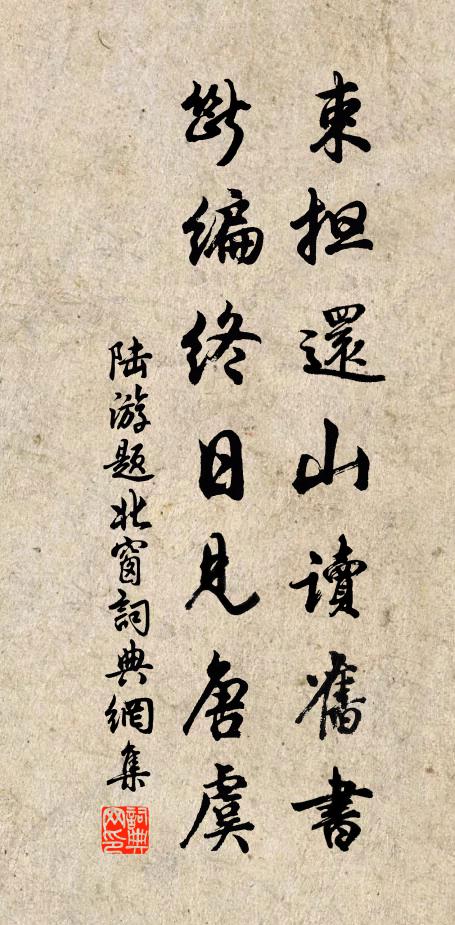 束担還山讀舊書
斷編終日見唐虞
陆游题北窗詞典網集
詞典网印